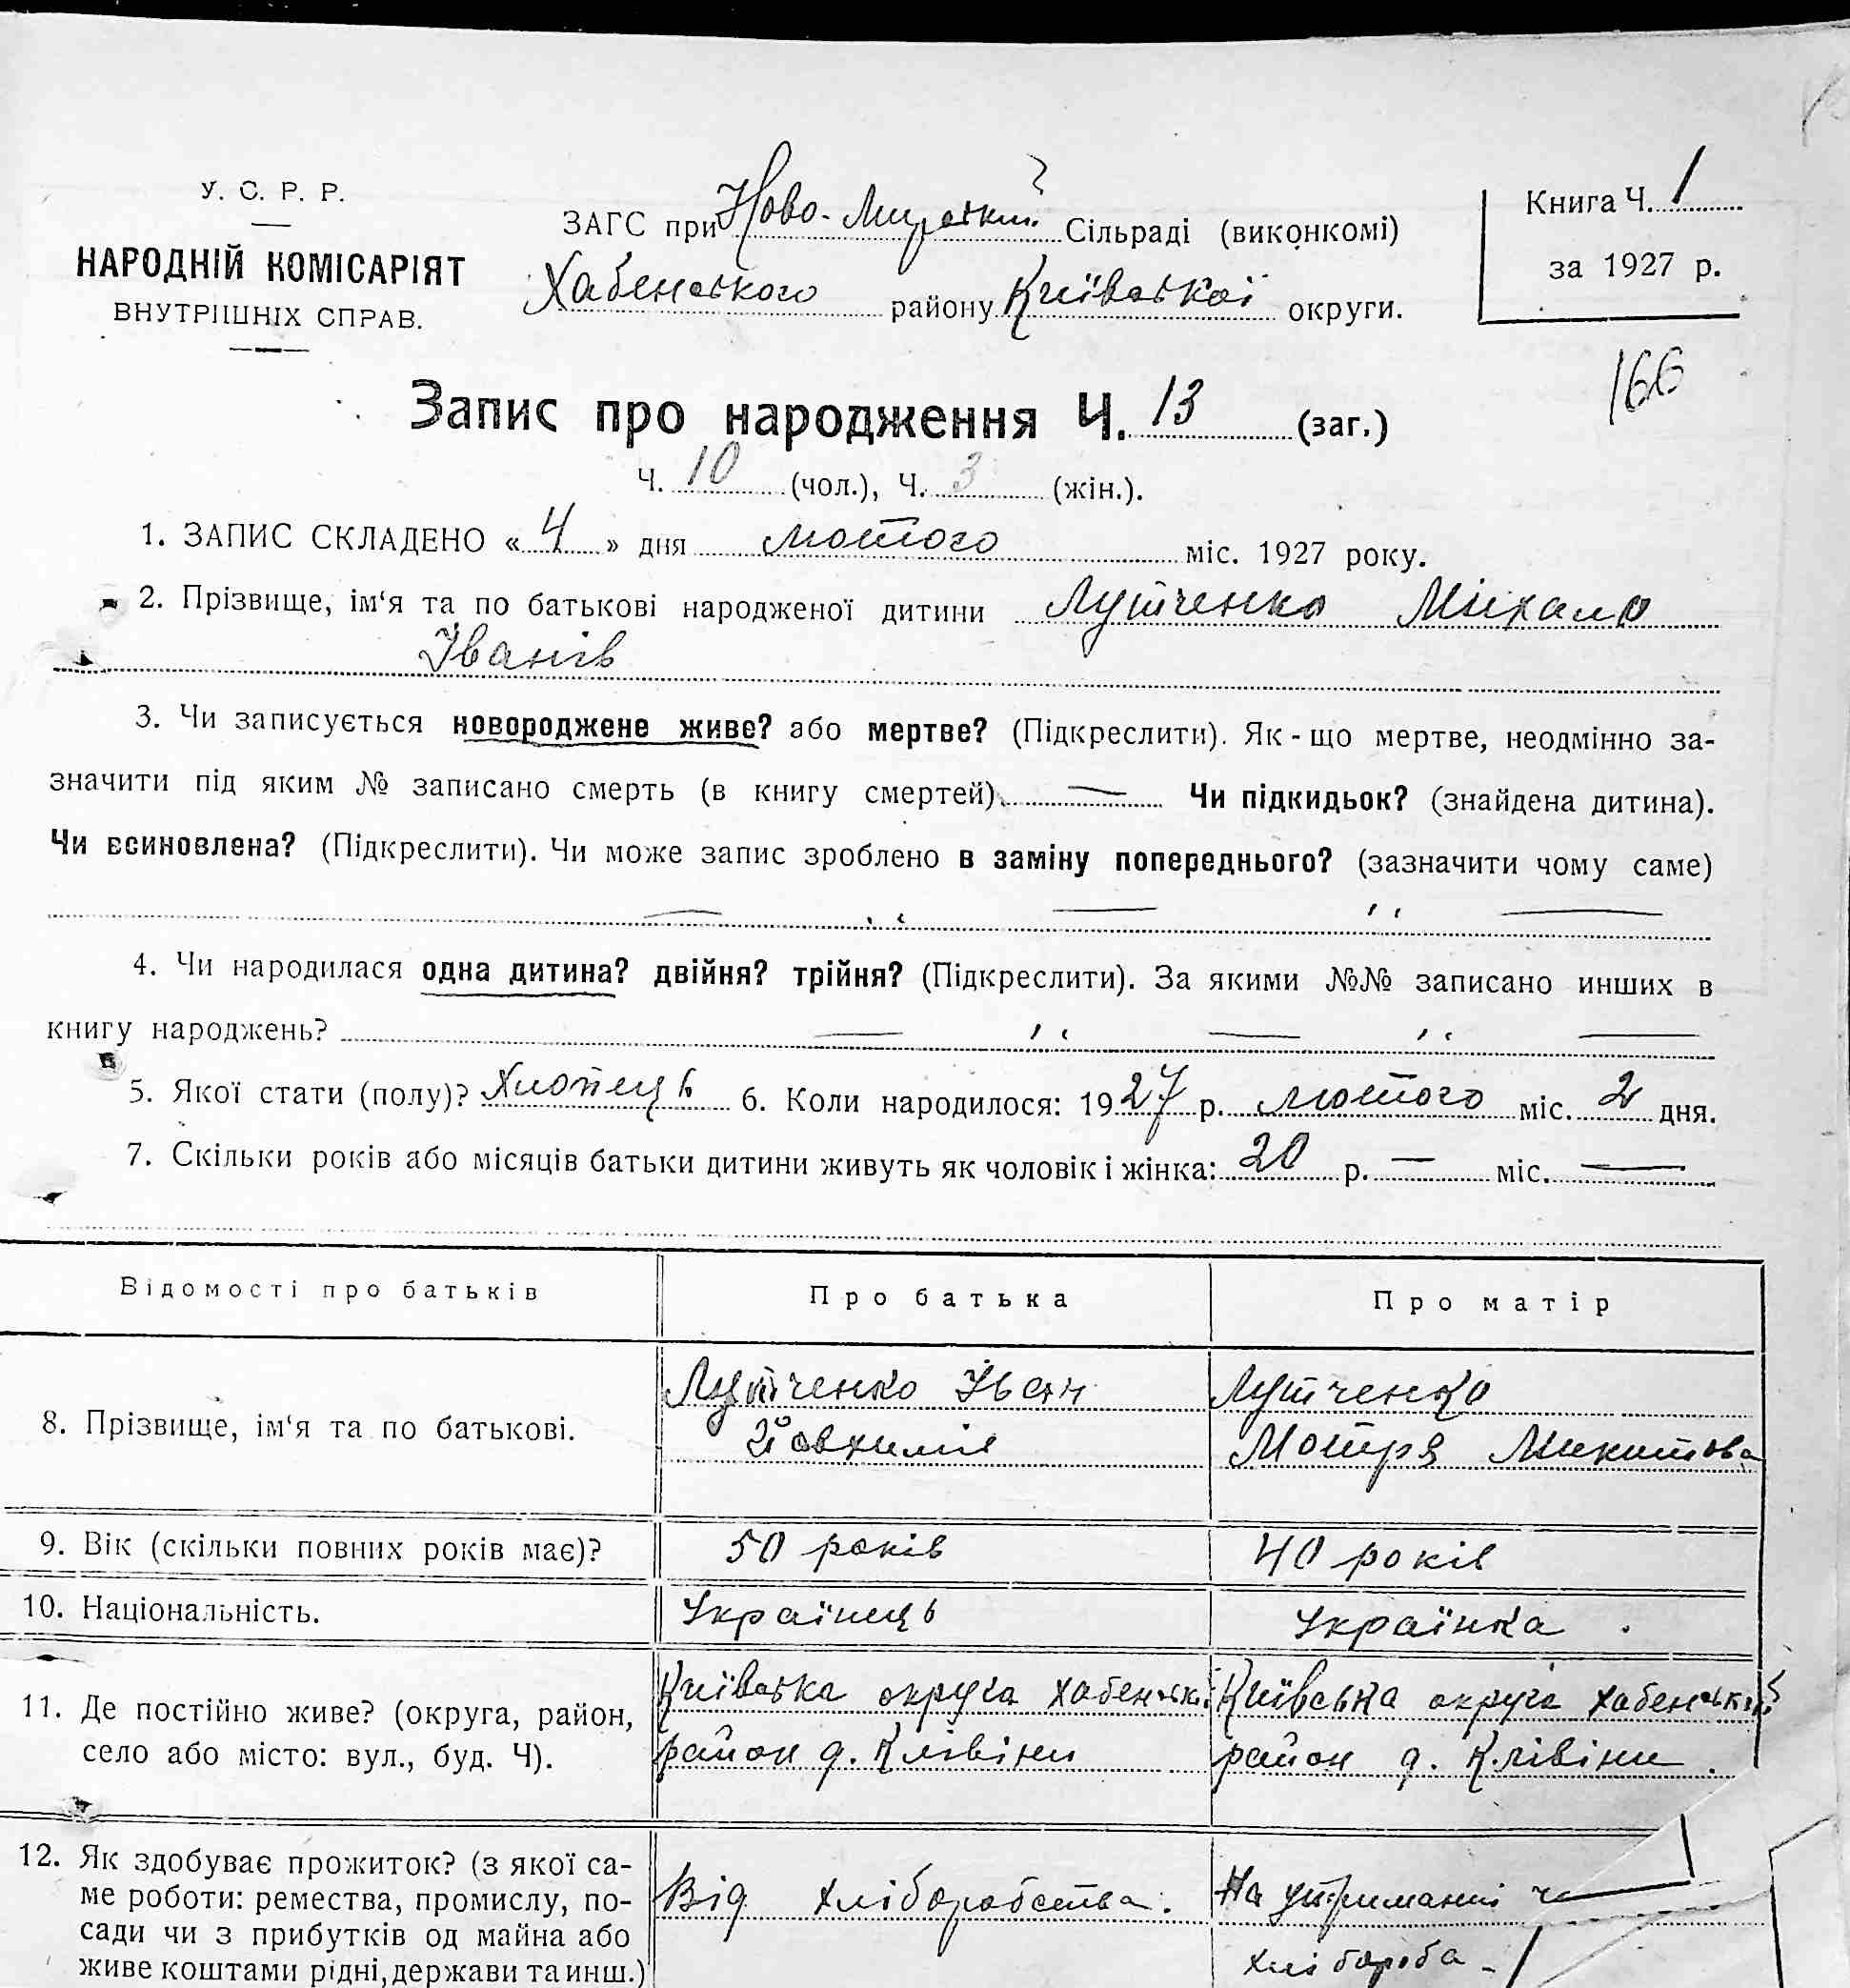 У. С. Р. Р.
НАРОДНІЙ КОМІСАРІЯТ
ВНУТРІШНІХ СПРАВ.
ЗАГС при Ново-Мирській Сільраді (виконкомі)
Хабенського району Київської округи.
Книга Ч. 1
за 1927 р.
166
Запис про народження Ч. 13 (заг.)
Ч. 10 (чол.), Ч. 3 (жін.).
1. ЗАПИС СКЛАДЕНО «4» дня лютого міс. 1927 року.
2. Прізвище, ім‘я та по батькові народженої дитини Лутченко Михало
Іванів
3. Чи записується новороджене живе? або мертве? (Підкреслити). Як-що мертве, неодмінно за-
значити під яким № записано смерть (в книгу смертей) — Чи підкидьок? (знайдена дитина).
Чи всиновлена? (Підкреслити). Чи може запис зроблено в заміну попереднього? (зазначити чому саме)
— ,, — ,, —
4. Чи народилася одна дитина? двійня? трійня? (Підкреслити). За якими №№ записано инших в
книгу народжень? — ,, — ,, —
5. Якої стати (полу)? Хлопець 6. Коли народилося: 1927 р. лютого міс. 2 дня.
7. Скільки років або місяців батьки дитини живуть як чоловік і жінка: 20 р. — міс. —
Відомості про батьків Про батька Про матір
8. Прізвище, ім‘я та по батькові.
Лутченко Іван
Лутченко
Мотря Микитова
9. Вік (скільки повних років має)? 50 років 40 років
10. Національність. Українець Українка.
11. Де постійно живе? (округа, район,
село або місто: вул., буд. Ч).
Київська округа Хабенський
район д. Клівіни
Київська округа Хабенський
район д. Клівіни.
12. Як здобуває прожиток? (з якої са-
ме роботи: ремества, промислу, по-
сади чи з прибутків од майна або
живе коштами рідні, держави та инш.)
Від хліборобства.
На утриманні
хлібороба